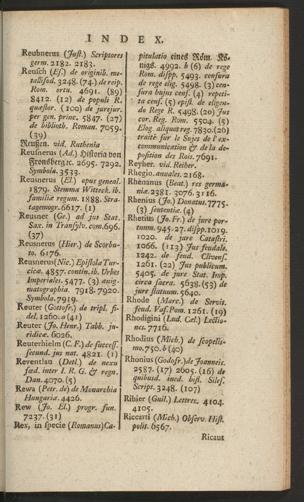 INDEX.
Reubnerus (Just.) Scriptores
germ. 2182. 2183.
Reusch (Ef.) de originib. metallifod.
3248. (74) de reip.
Rom. ortu. 4691. (89)
8412. (12) de populi R.
quæstor. (100) de jurejur.
per gen. princ. 5847. (27)
de biblioth. Roman. 7059.
(39)
Reußen. vid. Ruthenia
Reusnerus (Ad.) Historia von
Frondbergk. 2695. 7292.
Symbola. 3533.
Reusnerus (El.) opus geneal.
1879. Stemma Wittech. ib.
familiæ regum. 1888. Stratagemogr.
6617. (1)
Reusner (Ge.) ad jus Stat.
Sax. in Transylv. com. 696.
(37)
Reusnerus (Hier.) de Scorbuto.
6176.
Reusnerus (Nic.) Epistolæ Turcicæ.
4857. contin. ib. Urbes
Imperiales. 5477. (3)
7918. 7920.
Symbola. 7919.
Reuter (Gottofr.) de tripl. fidel.
1260. a (41)
Reuter (Jo. Henr.) Tabb. juridicæ.
6026.
Reuterhielm (C. F.) de success.
secund. jus nat. 4821. (1)
Reventlau (Detl.) de nexu
feud. inter I. R. G. & regn.
Dan. 4070. (5)
Rewa (Petr. de) de Monarchia
Hungariæ. 4426.
Rew (Jo. El.) progr. fun.
7237. (31)
Rex, in specie (Romanus) Capitulatio
eines Röm. Königs.
4992. b (6) de rege
Rom. dispp. 5493. censura
de rege elig. 5498. (3) censura
hujus cens. (4) repetita
cens. (5) epist. de eligendo
Rege R. 5498. (20) Jus
cor. Reg. Rom. 5504. (5)
Eleg. aliquot reg. 7830. (20)
traité sur le Sujet de l'excommunication
& de la deposition
des Rois. 7691.
Reyher. vid. Reiher.
Rhegio. annales. 2168.
Rhenanus (Beat.) res germaniæ.
2381. 3076. 3116.
Rhenius (Jo.) Donatus. 7775.
(3) sententiæ. (4)
Rhetius (Jo. Fr.) de jure portuum.
945. 27. dispp. 1019.
1020. de jure Catastri.
1066. (113) Jus feudale.
1242. de feud. Clivens.
1261. (22) Jus publicum.
5405. de jure Stat. Imp.
circa sacra. 5638. (53) de
jure statuum. 5640.
Rhode (Marc.) de Servit.
feud. Vas. Pom. 1261. (19)
Rhodiginii (Lud. Cæl.) Lectiones.
7716.
Rhodius (Mich.) de scopelismo.
750. b (40)
Rhonius (Godofr.) de Joanneis.
2587. (17) 2605. (16) de
quibusd. ined. hist. Siles.
Script. 3248. (107)
Ribier (Guil.) Lettres. 4104.
4105.
Riccarti (Mich.) Observ. Hist.
polit. 6567.
Ricaut